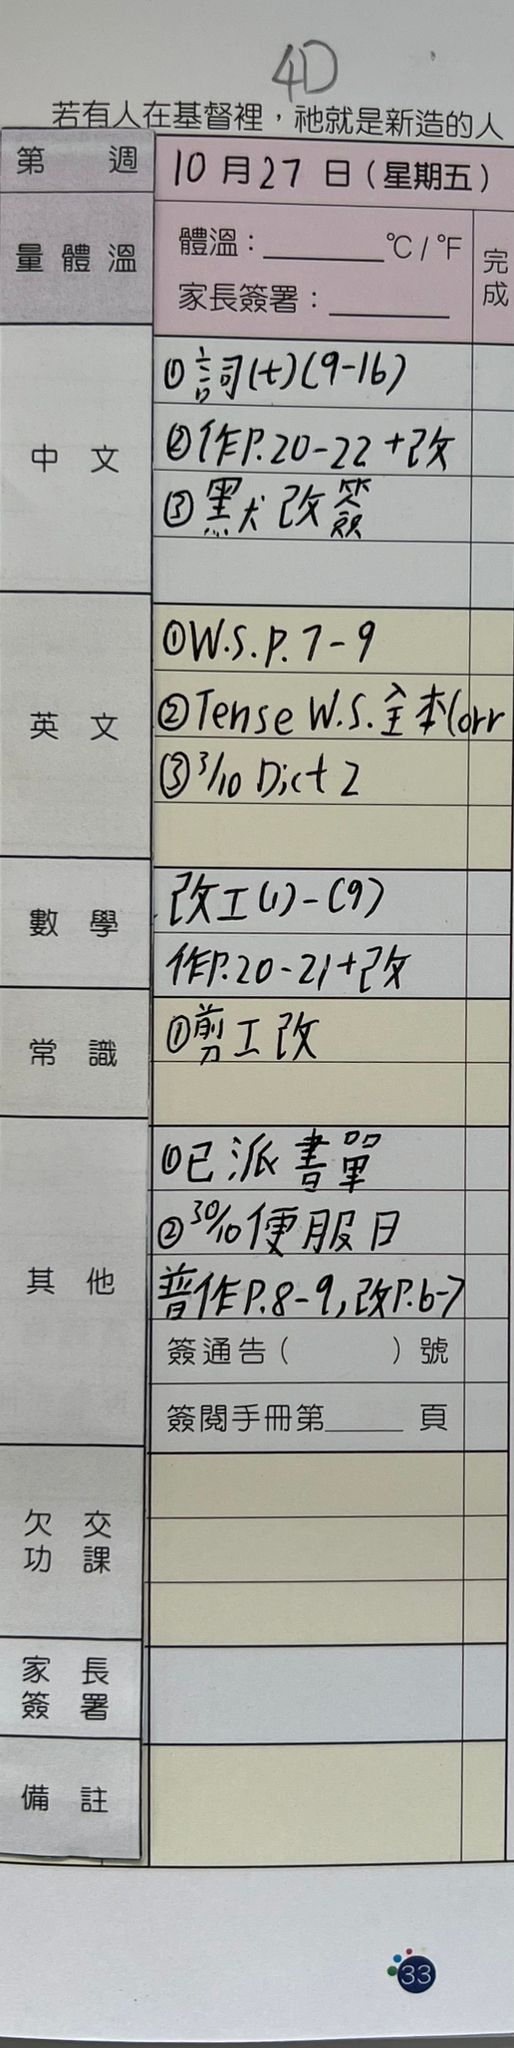 4D
若有人在基督裡，祂就是新造的人
第 週 10月27日(星期五)
量體溫 體溫：______°C/°F 完成
家長簽署：______
中文 ①詞(七)(9-16)
②作P.20-22+改
③默改簽
英文 ①W.S.P.7-9
②Tense W.S.全本Corr
③3/10 Dict 2
數學 改工(1)-(9)
作P.20-21+改
常識 ①剪工改
其他 ①已派書單
②30/10便服日
普作P.8-9,改P.6-7
簽通告( )號
簽閱手冊第____頁
欠交功課
家長簽署
備註
33